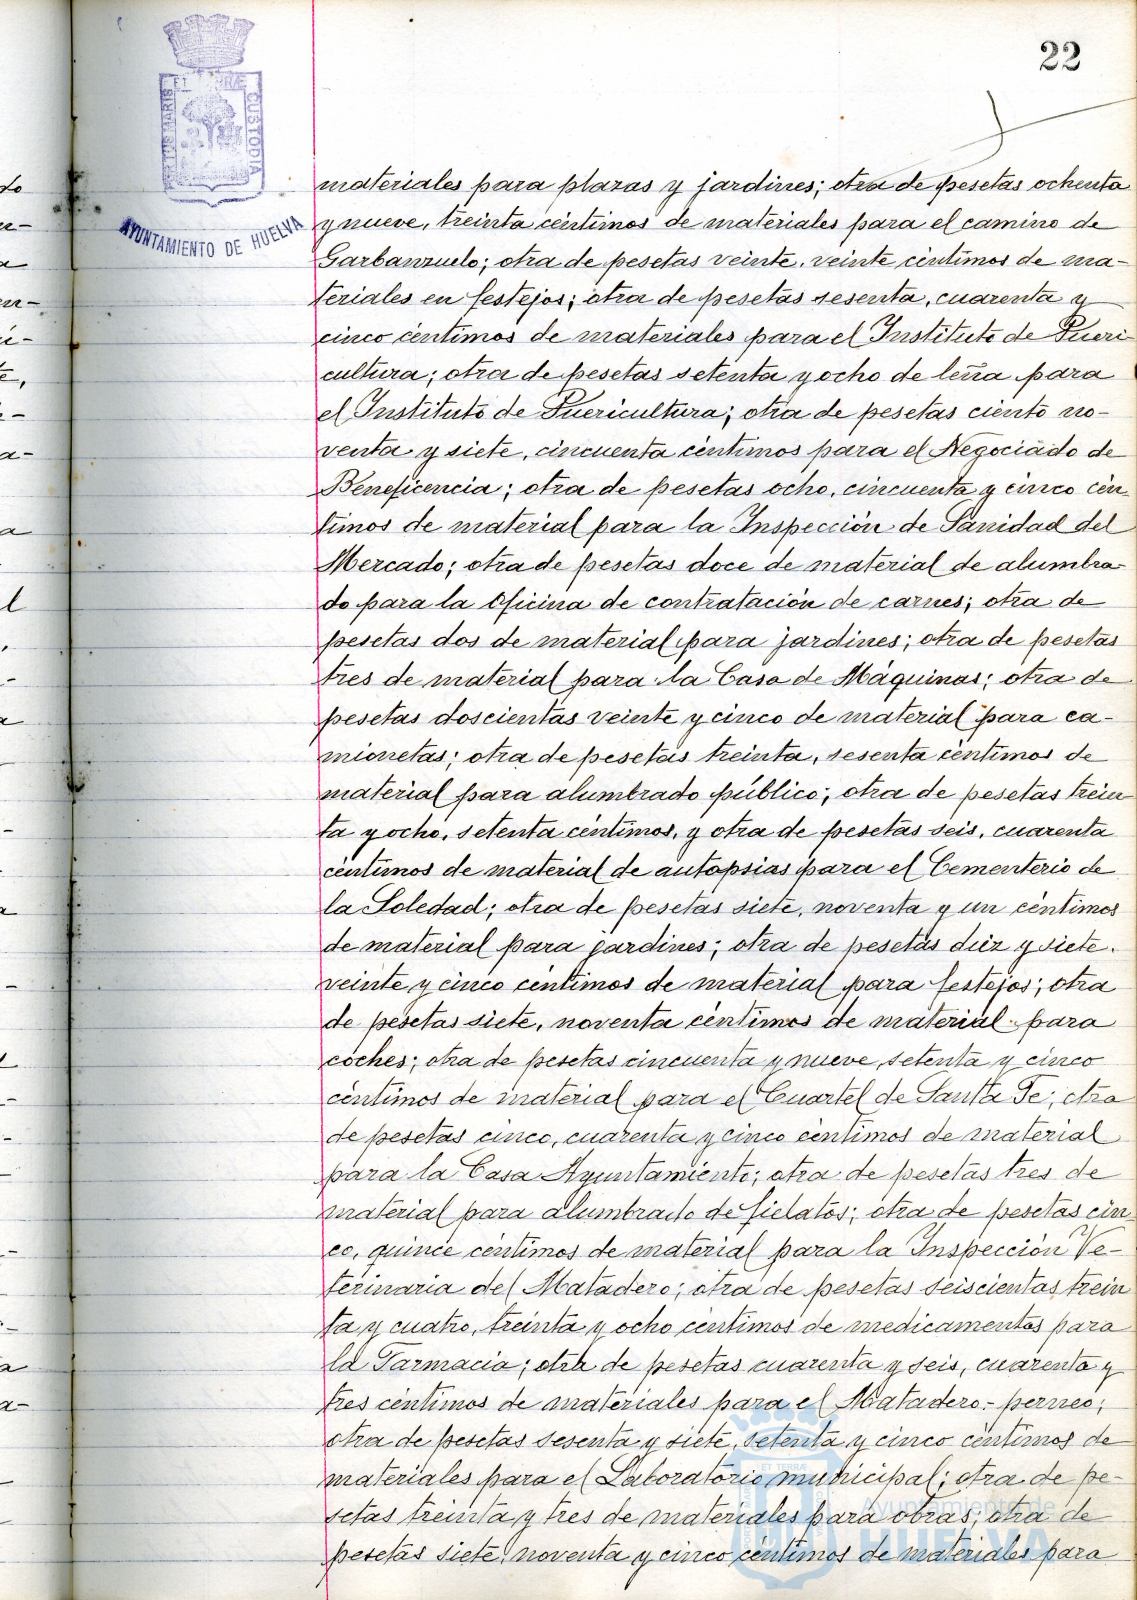 22
PORTUS MARIS ET TERRÆ CUSTODIA
AYUNTAMIENTO DE HUELVA
materiales para plazas y jardines; otra de pesetas ochenta
y nueve, treinta céntimos de materiales para el camino de
Garbanzuelo; otra de pesetas veinte, veinte céntimos de ma-
teriales en festejos; otra de pesetas sesenta, cuarenta y
cinco céntimos de materiales para el Instituto de Pueri-
cultura; otra de pesetas setenta y ocho de leña para
el Instituto de Puericultura; otra de pesetas ciento no-
venta y siete, cincuenta céntimos para el Negociado de
Beneficencia; otra de pesetas ocho, cincuenta y cinco cén-
timos de material para la Inspección de Sanidad del
Mercado; otra de pesetas doce de material de alumbra-
do para la Oficina de contratación de carnes; otra de
pesetas dos de material para jardines; otra de pesetas
tres de material para la Casa de Máquinas; otra de
pesetas doscientas veinte y cinco de material para ca-
mionetas; otra de pesetas treinta, sesenta céntimos de
material para alumbrado público; otra de pesetas trein-
ta y ocho, setenta céntimos, y otra de pesetas seis, cuarenta
céntimos de material de autopsias para el Cementerio de
la Soledad; otra de pesetas siete, noventa y un céntimos
de material para jardines; otra de pesetas diez y siete,
veinte y cinco céntimos de material para festejos; otra
de pesetas siete, noventa céntimos de material para
coches; otra de pesetas cincuenta y nueve, setenta y cinco
céntimos de material para el Cuartel de Santa Fe; otra
de pesetas cinco, cuarenta y cinco céntimos de material
para la Casa Ayuntamiento; otra de pesetas tres de
material para alumbrado de fielatos; otra de pesetas cin-
co, quince céntimos de material para la Inspección Ve-
terinaria del Matadero; otra de pesetas seiscientas trein
ta y cuatro, treinta y ocho céntimos de medicamentos para
la Farmacia; otra de pesetas cuarenta y seis, cuarenta y
tres céntimos de materiales para el Matadero-perneo;
otra de pesetas sesenta y siete, setenta y cinco céntimos de
materiales para el Laboratorio municipal; otra de pe-
setas treinta y tres de materiales para obras; otra de
pesetas siete, noventa y cinco céntimos de materiales para
Ayuntamiento de
HUELVA